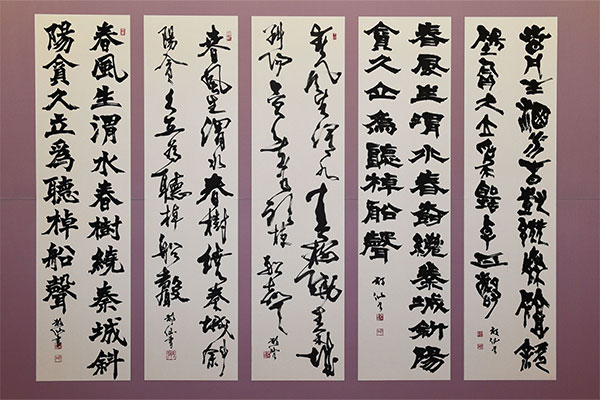 春風生渭水春樹繞秦城斜
陽貪久立爲聽棹船聲
春風生渭水春樹繞秦城斜陽
貪久立爲聽棹船聲
春風生渭水春樹繞秦城
斜陽貪久立爲聽棹船聲
春風生渭水春樹繞秦城斜
陽貪久立爲聽棹船聲
春風生渭水春樹繞秦城斜
陽貪久立爲聽棹船聲